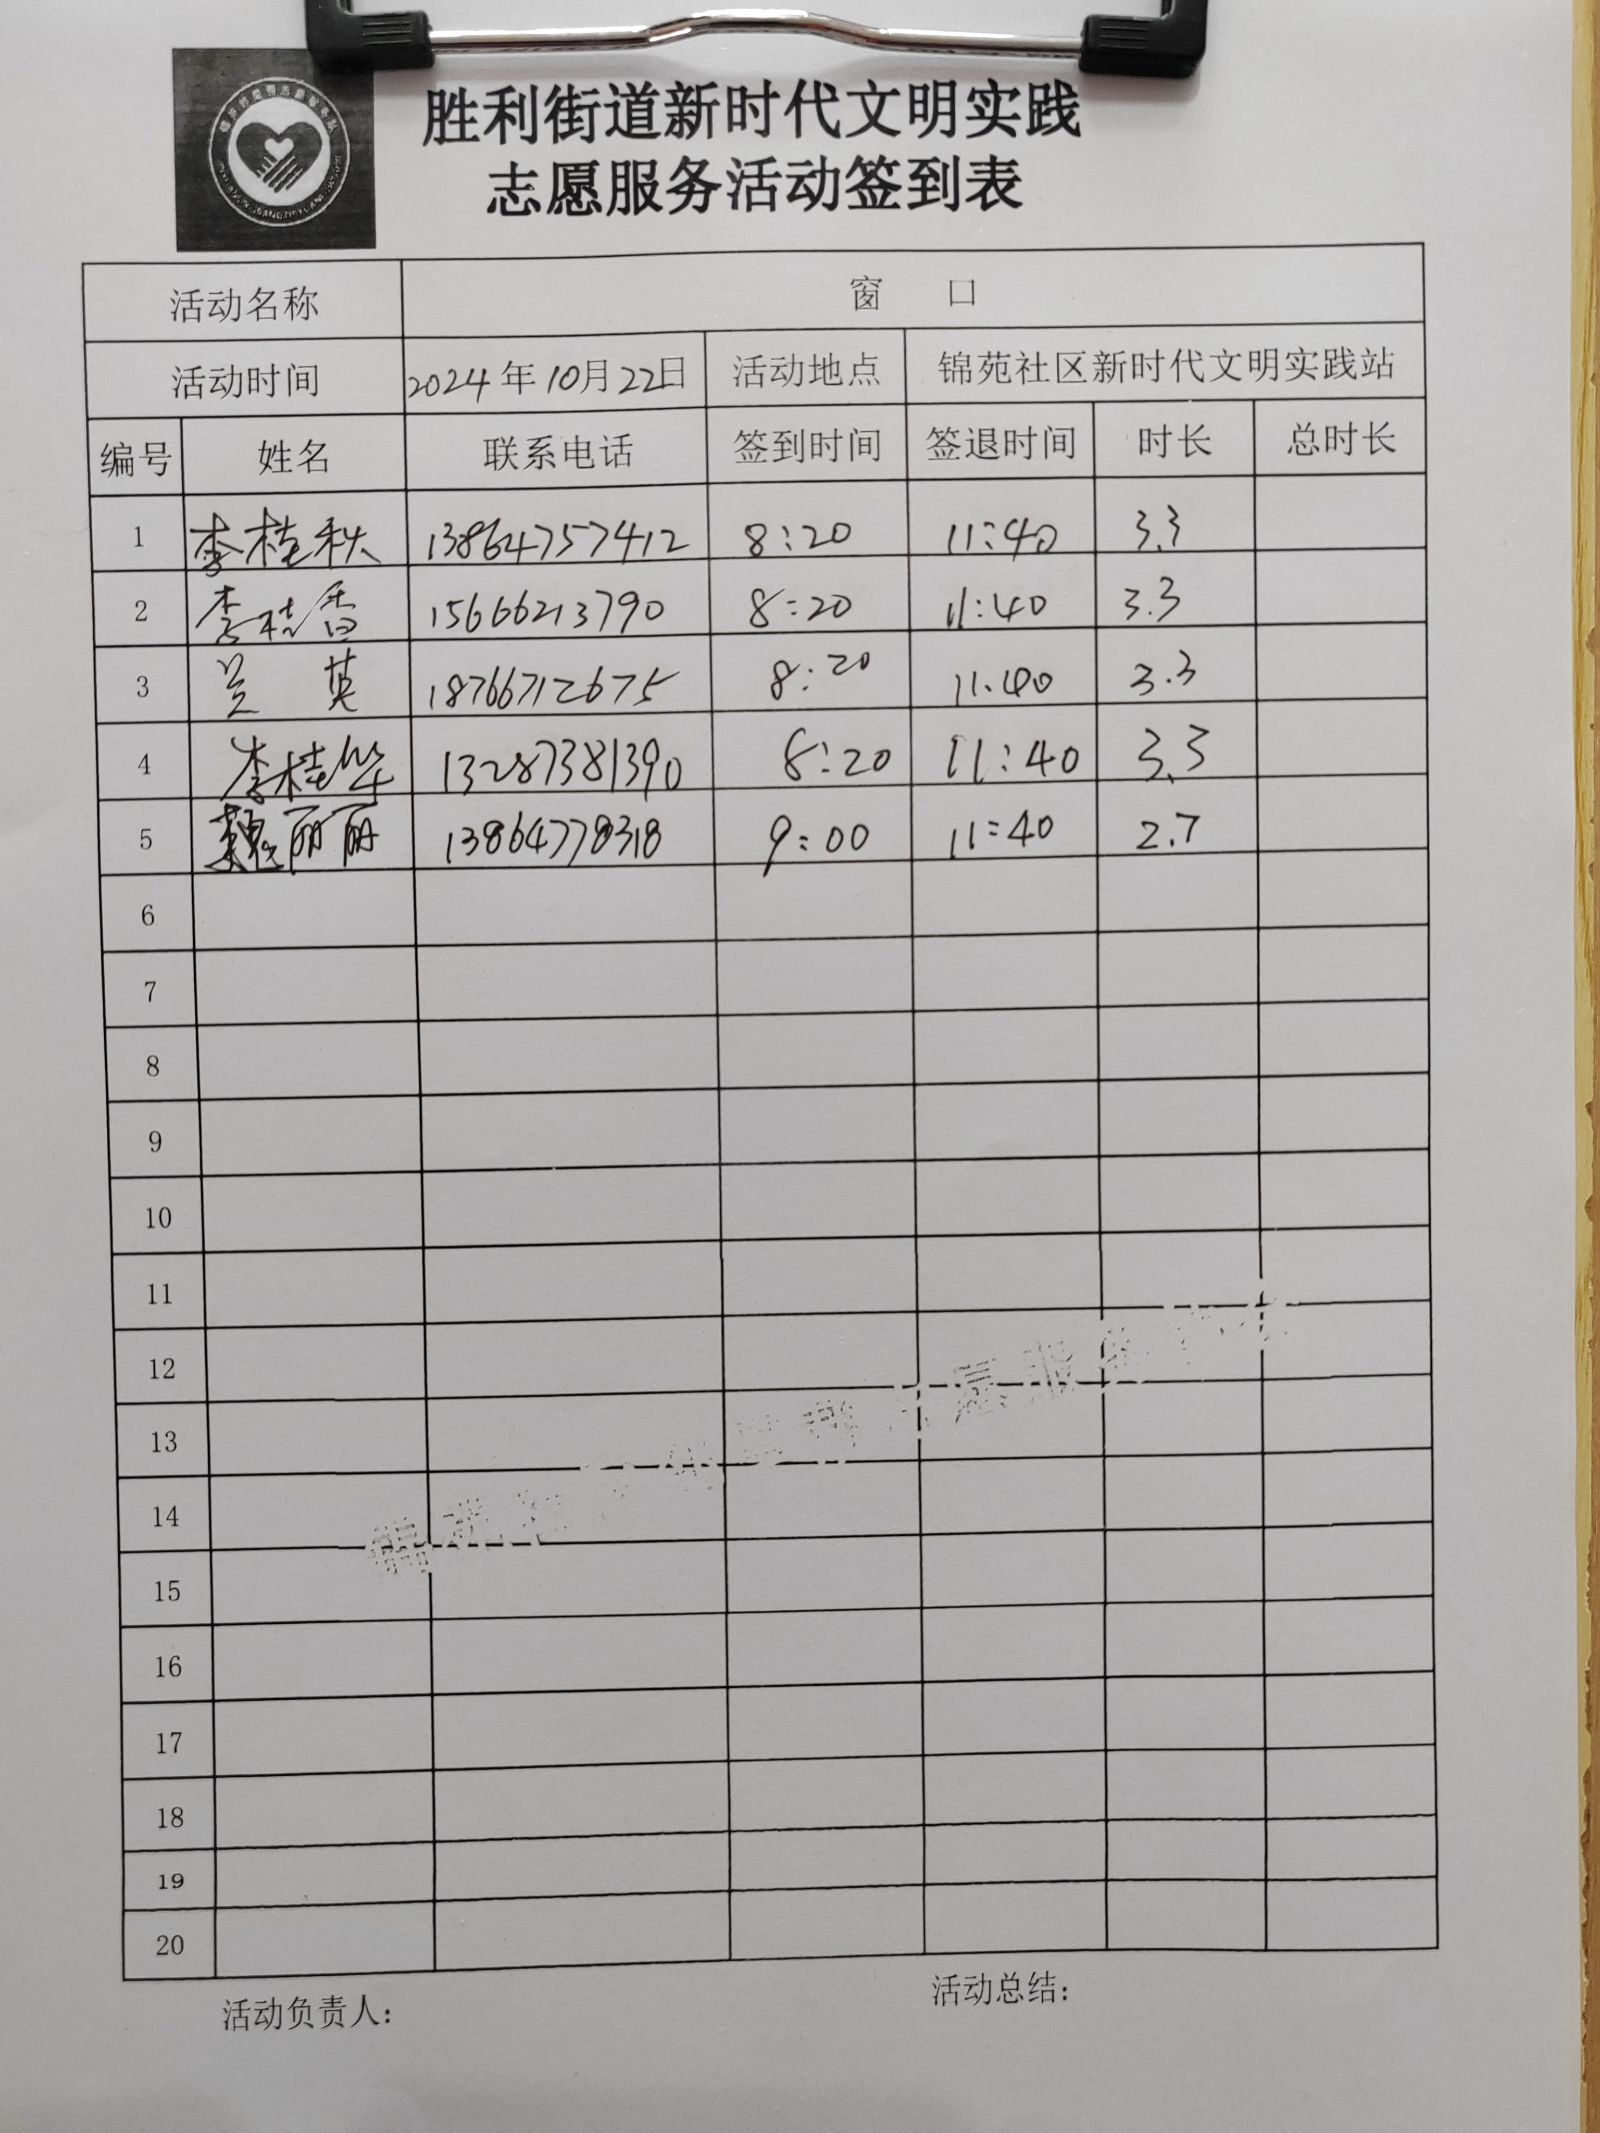 胜利街道新时代文明实践
志愿服务活动签到表
活动名称 窗 口
活动时间 2024年10月22日 活动地点 锦苑社区新时代文明实践站
编号 姓名 联系电话 签到时间 签退时间 时长 总时长
1 李桂秋 13864757412 8:20 11:40 3.3
2 李桂香 15666213790 8:20 11:40 3.3
3 兰 英 18766712675 8:20 11:40 3.3
4 李桂华 13287381390 8:20 11:40 3.3
5 魏丽丽 13864778318 9:00 11:40 2.7
6
7
8
9
10
11
12
13
14
15
16
17
18
19
20
活动负责人: 活动总结: